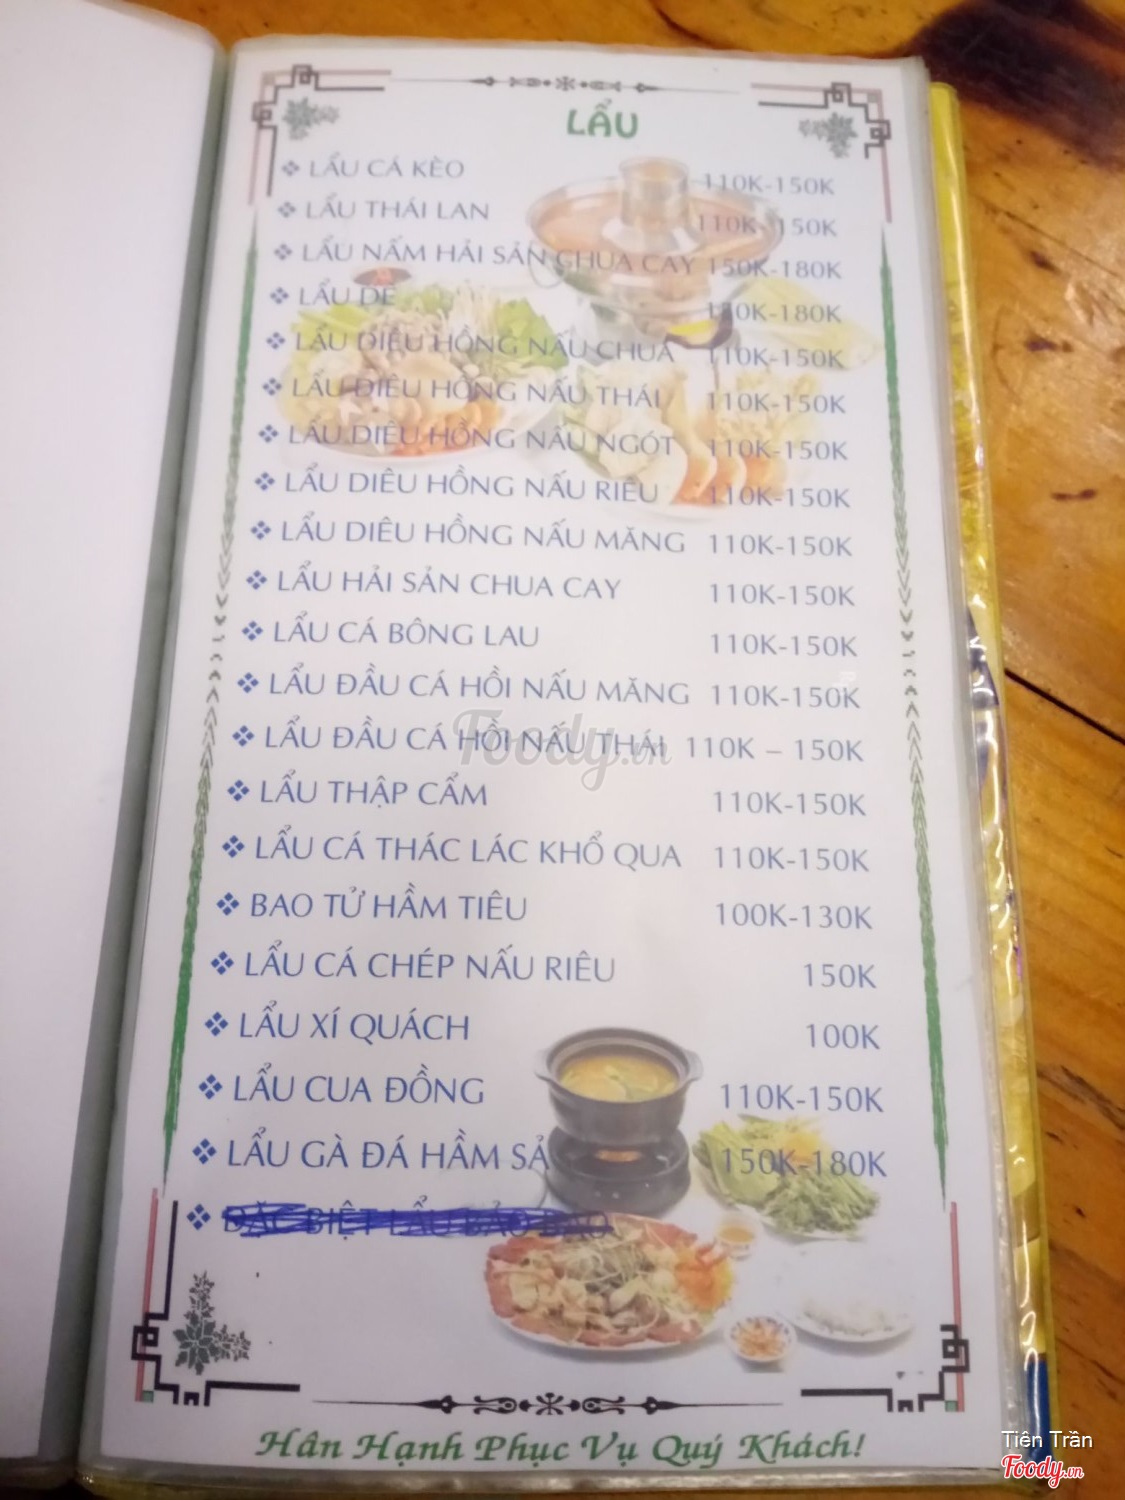 LẨU
LẨU CÁ KÈO 110K-150K
LẨU THÁI LAN 110K-150K
LẨU NẤM HẢI SẢN CHUA CAY 150K-180K
LẨU DÊ K-180K
LẨU DIÊU HỒNG NẤU CHUA 110K-150K
LẨU DIÊU HỒNG NẤU THÁI 110K-150K
LẨU DIÊU HỒNG NẤU NGÓT 110K-150K
LẨU DIÊU HỒNG NẤU RIÊU 110K-150K
LẨU DIÊU HỒNG NẤU MĂNG 110K-150K
LẨU HẢI SẢN CHUA CAY 110K-150K
LẨU CÁ BÔNG LAU 110K-150K
LẨU ĐẦU CÁ HỒI NẤU MĂNG 110K-150K
LẨU ĐẦU CÁ HỒI NẤU THÁI 110K – 150K
Foody.vn
LẨU THẬP CẨM 110K-150K
LẨU CÁ THÁC LÁC KHỔ QUA 110K-150K
BAO TỬ HẦM TIÊU 100K-130K
LẨU CÁ CHÉP NẤU RIÊU 150K
LẨU XÍ QUÁCH 100K
LẨU CUA ĐỒNG 110K-150K
LẨU GÀ ĐÁ HẦM SẢ 150K-180K
ĐẶC BIỆT LẨU BẢO
Hân Hạnh Phục Vụ Quý Khách!
Tiên Trần
Foody.vn